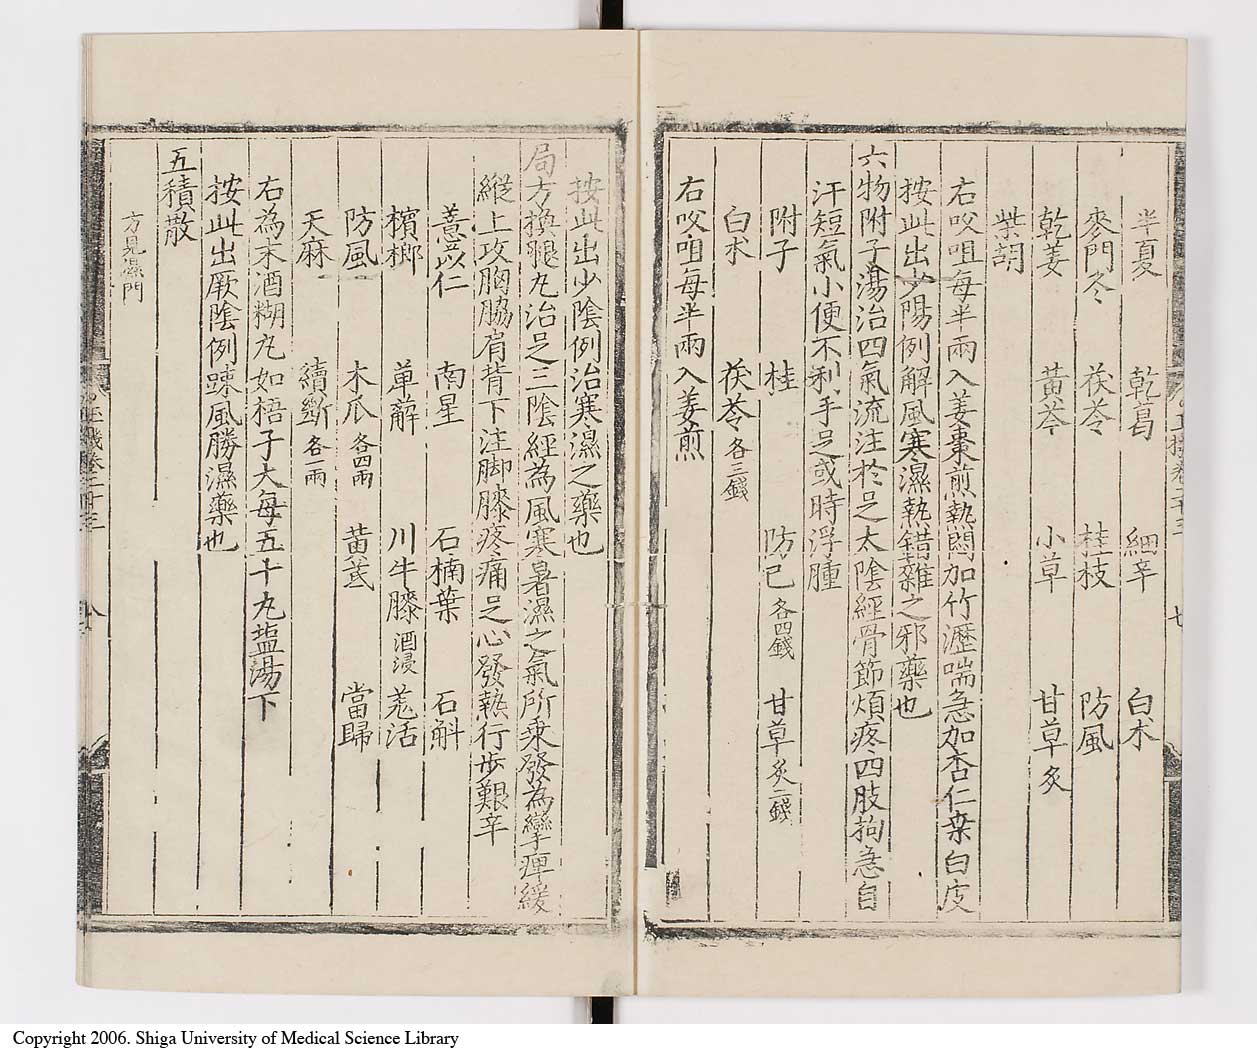 半夏 乾葛 細辛 白朮
麥門冬 茯苓 桂枝 防風
乾姜 黃芩 小草 甘草炙
柴胡
右㕮咀每半兩入姜棗煎熱悶加竹瀝喘急加杏仁桒白皮
按此出少陽例解風寒濕熱錯雜之邪藥也
六物附子湯治四氣流注於足太陰經骨節煩疼四肢拘急自
汗短氣小便不利手足或時浮腫
附子 桂 防己各四錢 甘草炙二錢
白朮 茯苓各三錢
右㕮咀每半兩入姜煎
按此出少陰例治寒濕之藥也
局方換腿丸治足三陰經為風寒暑濕之氣所乘發為攣痺緩
縱上攻胸脇肩背下注脚膝疼痛足心發熱行步艱辛
薏苡仁 南星 石楠葉 石斛
檳榔 萆薢 川牛膝酒浸 羌活
防風 木瓜各四兩 黃芪 當歸
天麻 續斷各一兩
右為末酒糊丸如梧子大每五十丸塩湯下
按此出厥陰例疎風勝濕藥也
五積散
方見濕門
Copyright 2006. Shiga University of Medical Science Library